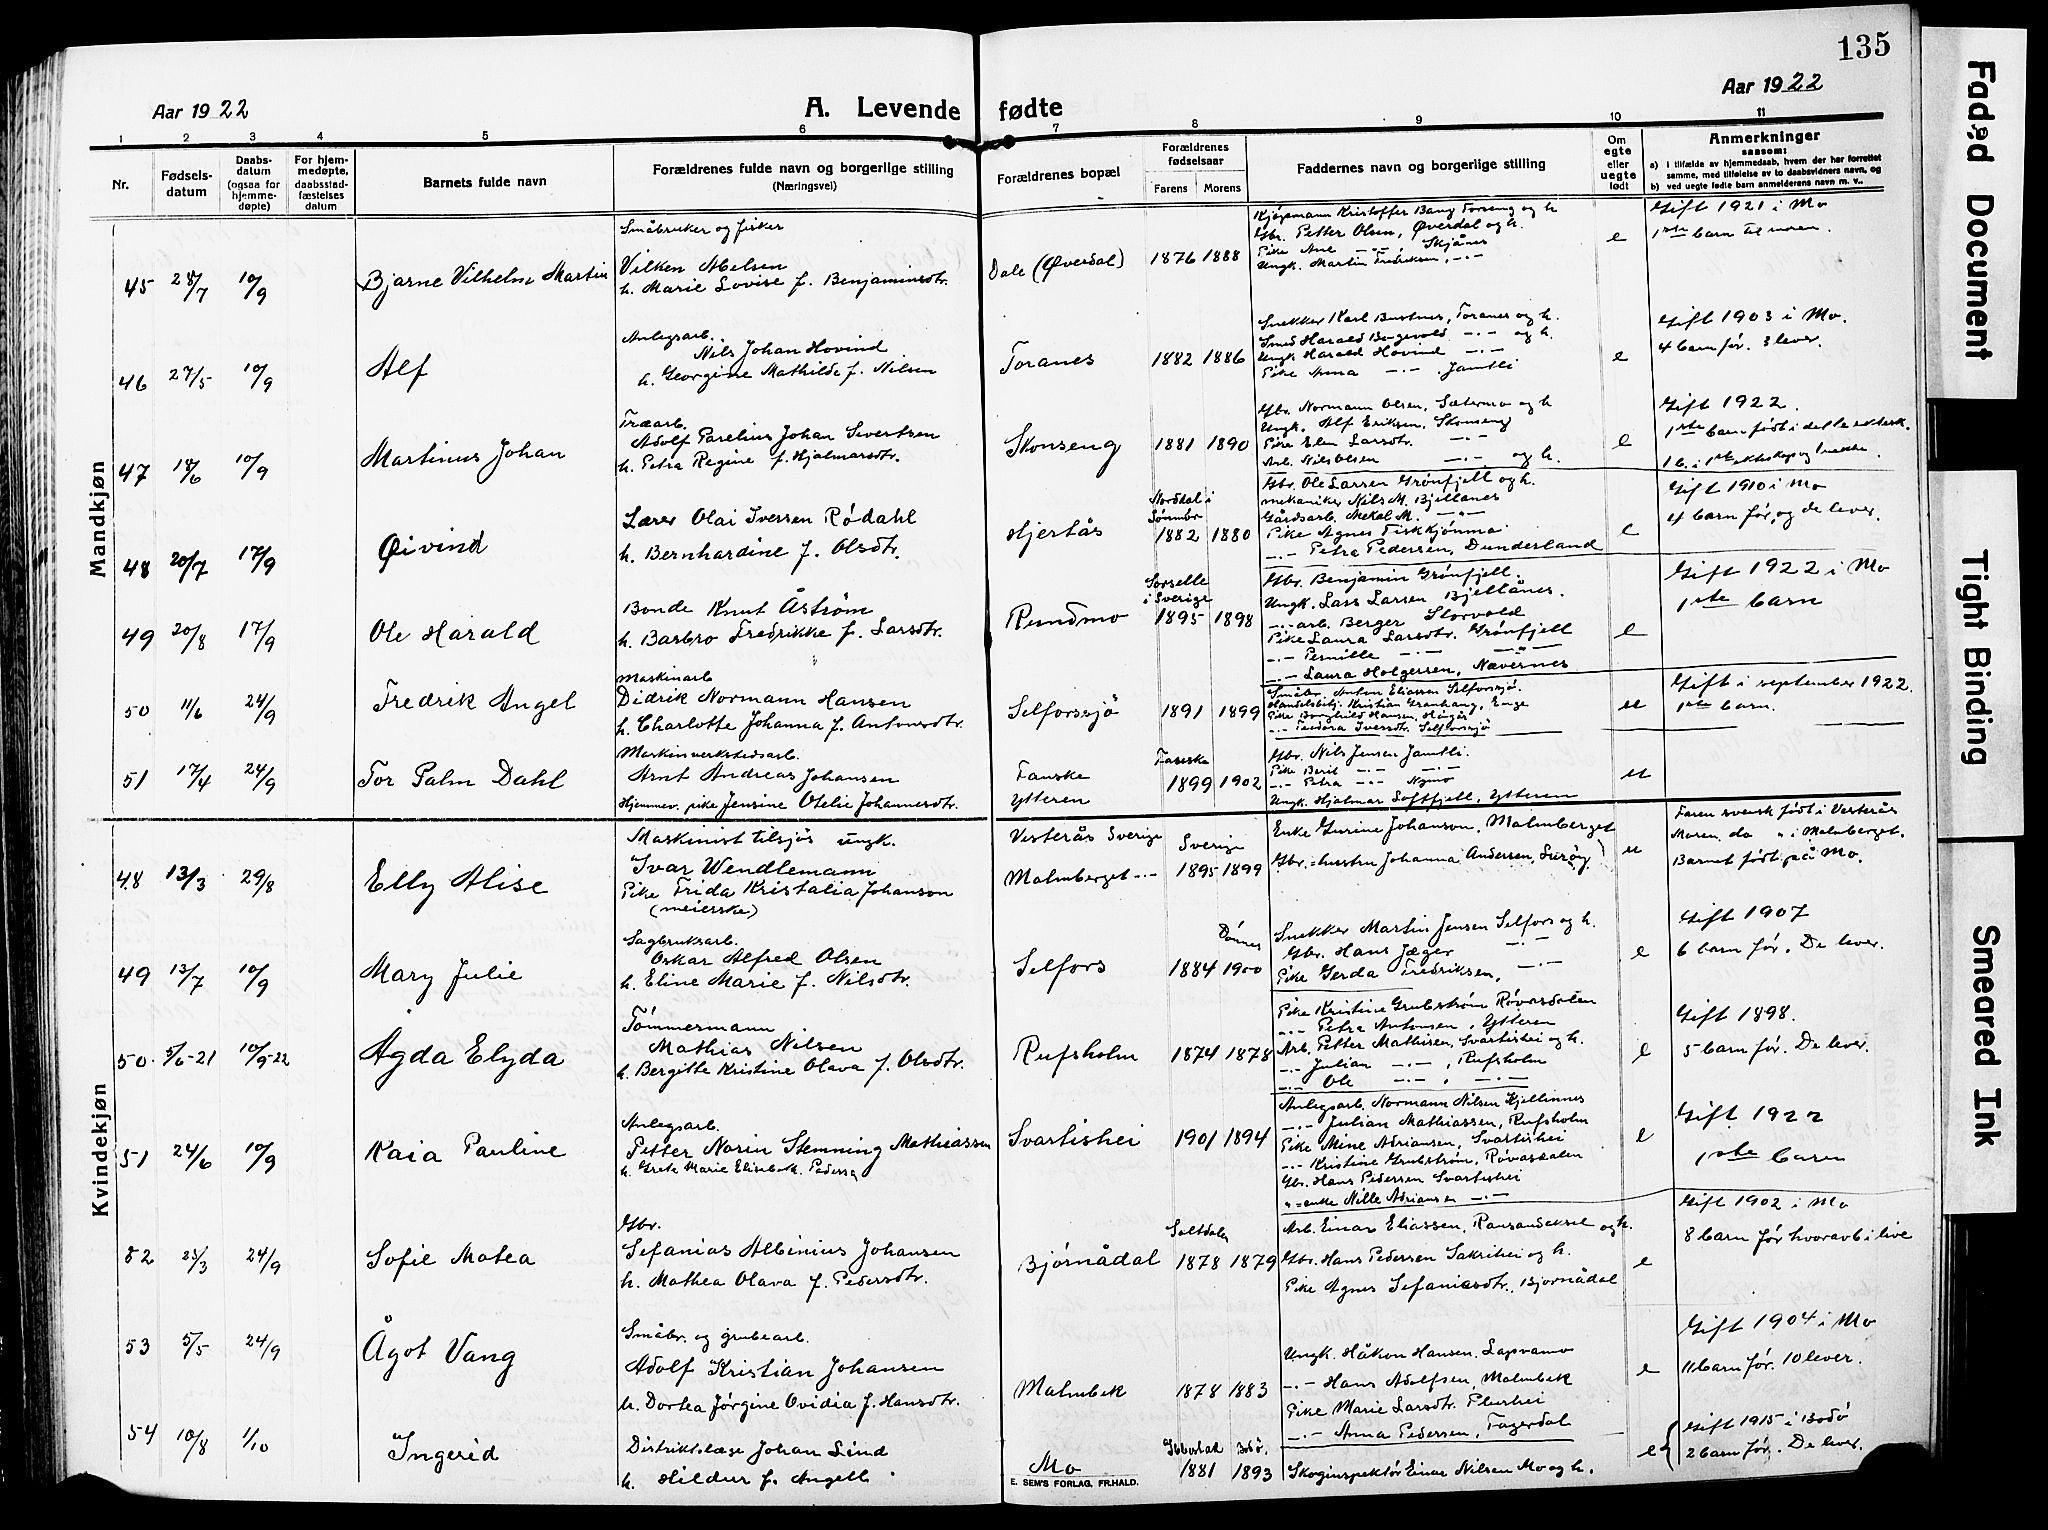 135
Aar 1922
A. Levende fødte
Aar 1922
1 2 3 4 5 6 7 8 9 10 11
Nr.
Fødsels-
datum
Daabs-
datum
(ogsaa for
hjemme-
døpte)
For hjem-
medøpte,
daabsstad-
fæstelses
datum
Barnets fulde navn
Forældrenes fulde navn og borgerlige stilling
(Næringsvei)
Forældrenes bopæl
Forældrenes
fødselsaar
Farens Morens
Faddernes navn og borgerlige stilling
Om
egte
eller
uegte
født
Anmerkninger
saasom:
a) i tilfælde av hjemmedaab, hvem der har forrettet
samme, med tilføielse av to daabsvidners navn, og
b) ved uegte fødte barn anmelderens navn m. v..
Mandkjøn
45 28/7 10/9 Bjarne Vilhelm Martin
Småbruker og fisker
Vilken Abelsen
h. Marie Lovise f. Benjaminsdtr.
Dale (Øverdal) 1876 1888
Kjøpmann Kristoffer Bang Forseng og h
Gbr. Petter Olsen, Øverdal og h.
Pike Ane -.- Skjånes
Ungk. Martin Fredriksen, -.-
e
Gift 1921 i Mo
1ste barn til moren.
46 27/5 10/9 Alf
Anlegsarb.
Nils Johan Hovind
h. Georgine Mathilde f. Nilsen
Toranes 1882 1886
Snekker Karl Bustnes, Toranes og h.
Smed Harald Bergevold -.- og h.
Ungk. Harald Hovind -.-
Pike Anna -.- Jamtli
e
Gift 1903 i Mo.
4 barn før. 3 lever.
47 18/6 10/9 Martinus Johan
Træarb.
Adolf Parelius Johan Sivertsen
h. Petra Regine f. Hjalmarsdtr.
Skonseng 1881 1890
Gbr. Normann Olsen, Sætermo og h
Ungk. Alf Eriksen, Skonseng
Pike Elen Larsdtr. -.-
Arb. Nils Olsen -.- og h.
e
Gift 1922.
1ste barn født i dette ektesk.
1 b. i 1ste ektskap og 1 uekte.
48 20/7 17/9 Øivind
Lærer Olai Iversen Rødahl
h. Bernhardine f. Olsdtr.
Hjertås
Norddal i
Sønmør
1882 1880
Gbr. Ole Larsen Grønfjell og h.
mekaniker Nils M. Bjellånes
Gårdsarb. Mekal M. -"-
Pike Agnes Fiskkjønmo
-.- Petra Pedersen, Dunderland
e
Gift 1910 i Mo
4 barn før, og de lever.
49 20/8 17/9 Ole Harald
Bonde Knut Åstrøm
h. Barbro Fredrikke f. Larsdtr.
Rundmo
Sorsele
i Sverige
1895 1898
Gbr. Benjamin Grønfjell.
Ungk. Lars Larsen Bjellånes.
-.- arb. Berger Storvold
Pike Laura Larsdtr. Grønfjell
-.- Pernille -.- -.-
-.- Laura Holgersen, Nævernes
e
Gift 1922 i Mo
1ste barn
50 11/6 24/9 Fredrik Angel
Maskinarb
Didrik Normann Hansen
h. Charlotte Johanna f. Antonsdtr.
Selforssjø 1891 1899
Småbr. Anton Eliassen Selforssjø.
Handelsbetj. Kristian Granhaug, Enge
Pike Borghild Hansen, Høgås
-.- Fredera Iversdtr. Selforssjø
u
Gift i september 1922.
1ste barn.
51 17/4 24/9 Tor Palm Dahl
Maskinverkstedsarb.
Arnt Andreas Johansen
Hjemmev. pike Jensine Otelie Johannesdtr.
Fauske
Ytteren
Fauske
1899 1902
Gbr. Nils Jensen Jamtli.
Pike Berit -.- -.-
-.- Petra -.- Nymo
Ungk. Hjalmar Softfjell, Ytteren
u
Kvindekjøn
48 13/3 29/8 Elly Alise
Maskinist tilsjøs ungk.
Ivar Wendlemann
Pike Frida Kristalia Johanson
(meierske)
Vesterås Sverige
Malmberget -.-
Sverige
1895 1899
Enke Gurine Johanson, Malmberget
Gbr.-hustru Johanna Andersen, Surøy
u
Faren svensk født i Vesterås
Moren do " i Malmberget.
Barnet født på Mo.
49 13/7 10/9 Mary Julie
Sagbruksarb.
Oskar Alfred Olsen
h. Eline Marie f. Nilsdtr.
Selfors
Dønnes
1884 1900
Snekker Martin Jensen Selfors og h.
Gbr. Hans Jæger -.-
Pike Gerda Fredriksen, -.-
e
Gift 1907
6 barn før. De lever.
50. 5/6-21 10/9-22 Agda Elyda
Tømmermann
Mathias Nilsen
h. Bergitte Kristine Olava f. Olsdtr.
Rufsholm 1874 1878
Pike Kristine Grubstrøm Røvasdalen
-.- Petra Antonsen, Ytteren
Arb. Petter Mathisen, Svartishei og h.
-.- Julian -.-, Rufsholm
-.- Ole -.-, -.-
e
Gift 1898.
5 barn før. De lever.
51 24/6 10/9 Kaia Pauline
Anlegsarb.
Petter Norin Stemning Mathiassen
h. Grete Marie Elisebet f. Pedersen
Svartishei 1901 1894
Anlegsarb. Normann Nilsen Kjellinnes
-.- Julian Mathiassen, Rufsholm
Pike Mine Adriansen, Svartishei
-.- Kristine Grubstrøm, Røvasdalen
Gbr. Hans Pedersen Svartishei
"-enke Nille Adriansen -.-
e
Gift 1922
1ste barn
52 23/3 24/9 Sofie Matea
Gbr.
Sefanias Albinius Johansen
h. Mathea Olava f. Pedersdtr.
Bjørnådal
Saltdalen
1878 1879
Arb. Einar Eliassen, Ransandeksel og h.
Gbr. Hans Pedersen Sakrihei og h.
Pike Agnes Sefaniasdtr., Bjørnådal
e
Gift 1902 i Mo
8 barn før hvorav 6 i live
53 5/5 24/9 Ågot Vang
Småbr. og grubearb.
Adolf Kristian Johansen
h. Dortea Jørgine Ovidia f. Hansdtr.
Malmbek 1878 1883
Ungk. Håkon Hansen, Lapvamo
-.- Hans Adolfsen, Malmbek
Pike Marie Larsdtr. Plurhei
-.- Anna Pedersen, Fagerdal
e
Gift 1904 i Mo
11 barn før. 10 lever.
54 10/8 1/10 Ingerid
Distriktslæge Johan Lind
h. Hildur f. Angell
Mo
Ibbestad Bodø.
1881 1893
Skoginspektør Einar Nilsen Mo og h.
e
Gift 1915 i Bodø
2 barn før. De lever.
E. SEM'S FORLAG, FR.HALD.
Faded Document
Tight Binding
Smeared Ink